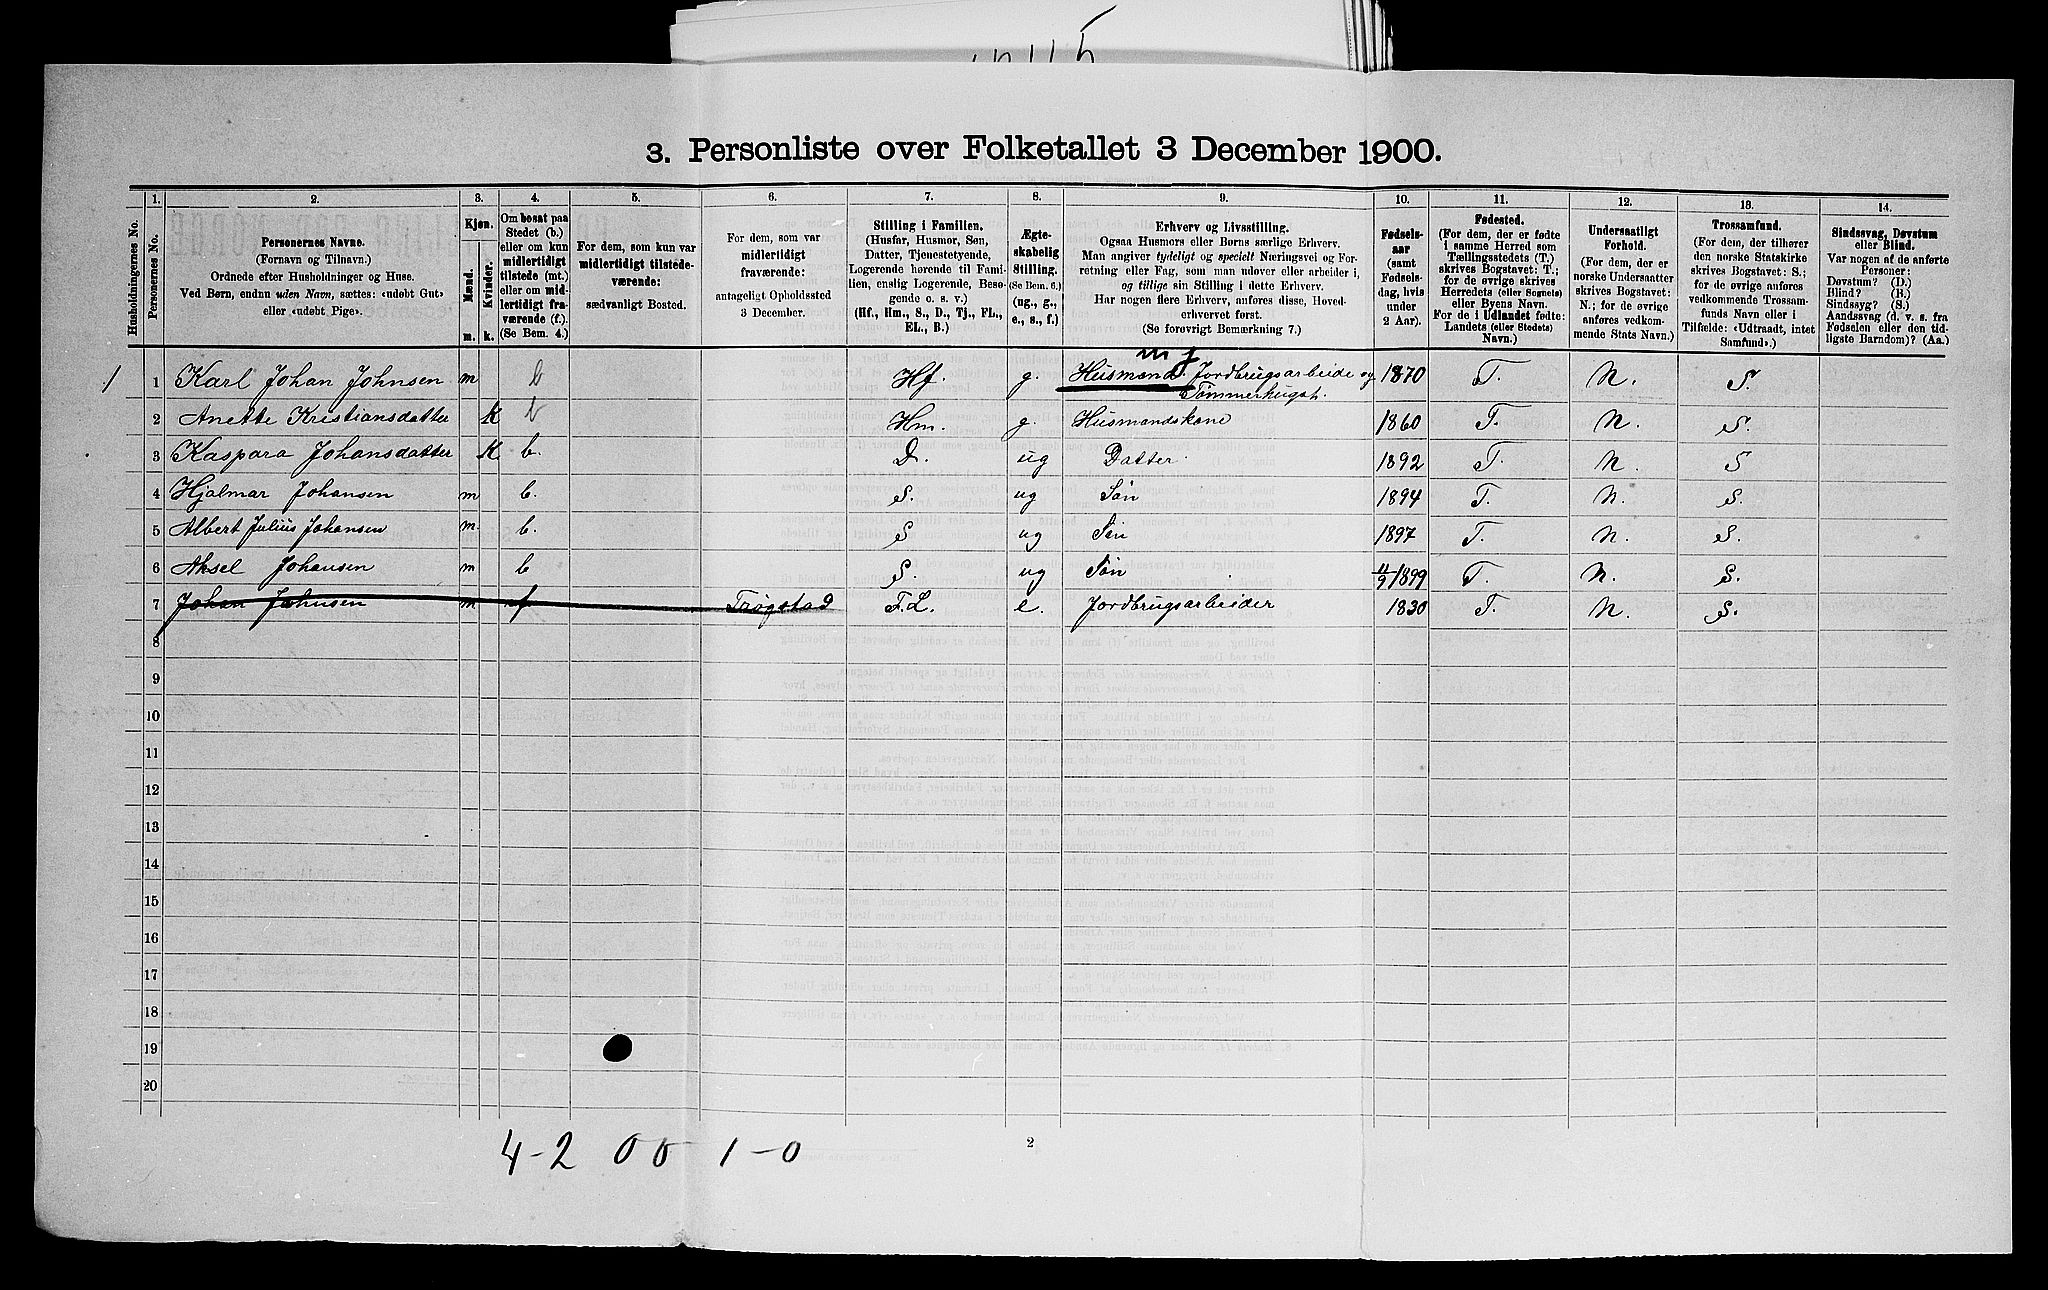 3. Personliste over Folketallet 3 December 1900.
1. 2. 3. 4. 5. 6. 7. 8. 9. 10. 11. 12. 13. 14.
Husholdningernes No.
Personernes No.
Personernes Navne.
(Fornavn og Tilnavn.)
Ordnede efter Husholdninger og Huse.
Ved Børn, endnu uden Navn, sættes: «udøbt Gut»
eller «udøbt Pige».
Kjøn.
Mænd.
Kvinder.
m. k.
Om bosat paa
Stedet (b.)
eller om kun
midlertidigt
tilstede (mt.)
eller om mid-
lertidigt fra-
værende (f.).
(Se Bem. 4.)
For dem, som kun var
midlertidigt tilstede-
værende:
sædvanligt Bosted.
For dem, som var
midlertidigt
fraværende:
antageligt Opholdssted
3 December.
Stilling i Familien.
(Husfar, Husmor, Søn,
Datter, Tjenestetyende,
Logerende hørende til Fami-
lien, enslig Logerende, Besø-
gende o. s. v.)
(Hf., Hm., S., D., Tj., FL.,
EL., B.)
Ægte-
skabelig
Stilling.
(Se Bem. 6.)
(ug., g.,
e., s., f.)
Erhverv og Livsstilling.
Ogsaa Husmors eller Børns særlige Erhverv.
Man angiver tydeligt og specielt Næringsvei og For-
retning eller Fag, som man udøver eller arbeider i,
og tillige sin Stilling i dette Erhverv.
Har nogen flere Erhverv, anføres disse, Hoved-
erhvervet først.
(Se forøvrigt Bemærkning 7.)
Fødsels-
aar
(samt
Fødsels-
dag, hvis
under
2 Aar).
Fødested.
(For dem, der er fødte
i samme Herred som
Tællingsstedets (T.)
skrives Bogstavet: T.;
for de øvrige skrives
Herredets (eller Sognets)
eller Byens Navn.
For de i Udlandet fødte:
Landets (eller Stedets)
Navn.)
Undersaatligt
Forhold.
(For dem, der er
norske Undersaatter
skrives Bogstavet:
N.; for de øvrige
anføres vedkom-
mende Stats Navn.)
Trossamfund.
(For dem, der tilhører
den norske Statskirke
skrives Bogstavet: S.;
for de øvrige anføres
vedkommende Trossam-
funds Navn eller i
Tilfælde: «Udtraadt, intet
Samfund».)
Sindssvag, Døvstum
eller Blind.
Var nogen af de anførte
Personer:
Døvstum? (D.)
Blind? (B.)
Sindssyg? (S.)
Aandssvag (d. v. s. fra
Fødselen eller den tid-
ligste Barndom)? (Aa.)
1 1 Karl Johan Johnsen m b Hf. g. Husmand. Jordbrugsarbeide og 1870 T. N. S.
Tømmerhugst.
2 Anette Kristiansdatter K b Hm. g. Husmandskone 1860 T. N. S.
3 Kaspara Johansdatter K. b. D. ug Datter. 1892 T. N. S
4 Hjalmar Johansen m b. S. ug Søn 1894 T. N. S.
5 Albert Julius Johansen m. b. S ug Søn 1897 T. N. S.
6 Aksel Johansen m b S. ug Søn 11/9 1899 T. N. S.
7 Johan Johnsen m f Trøgstad F.L. e. Jordbrugsarbeider 1830 T. N. S.
8
9
10
11
12
13
14
15
16
17
18
19
20
4-2 00 1-0
2